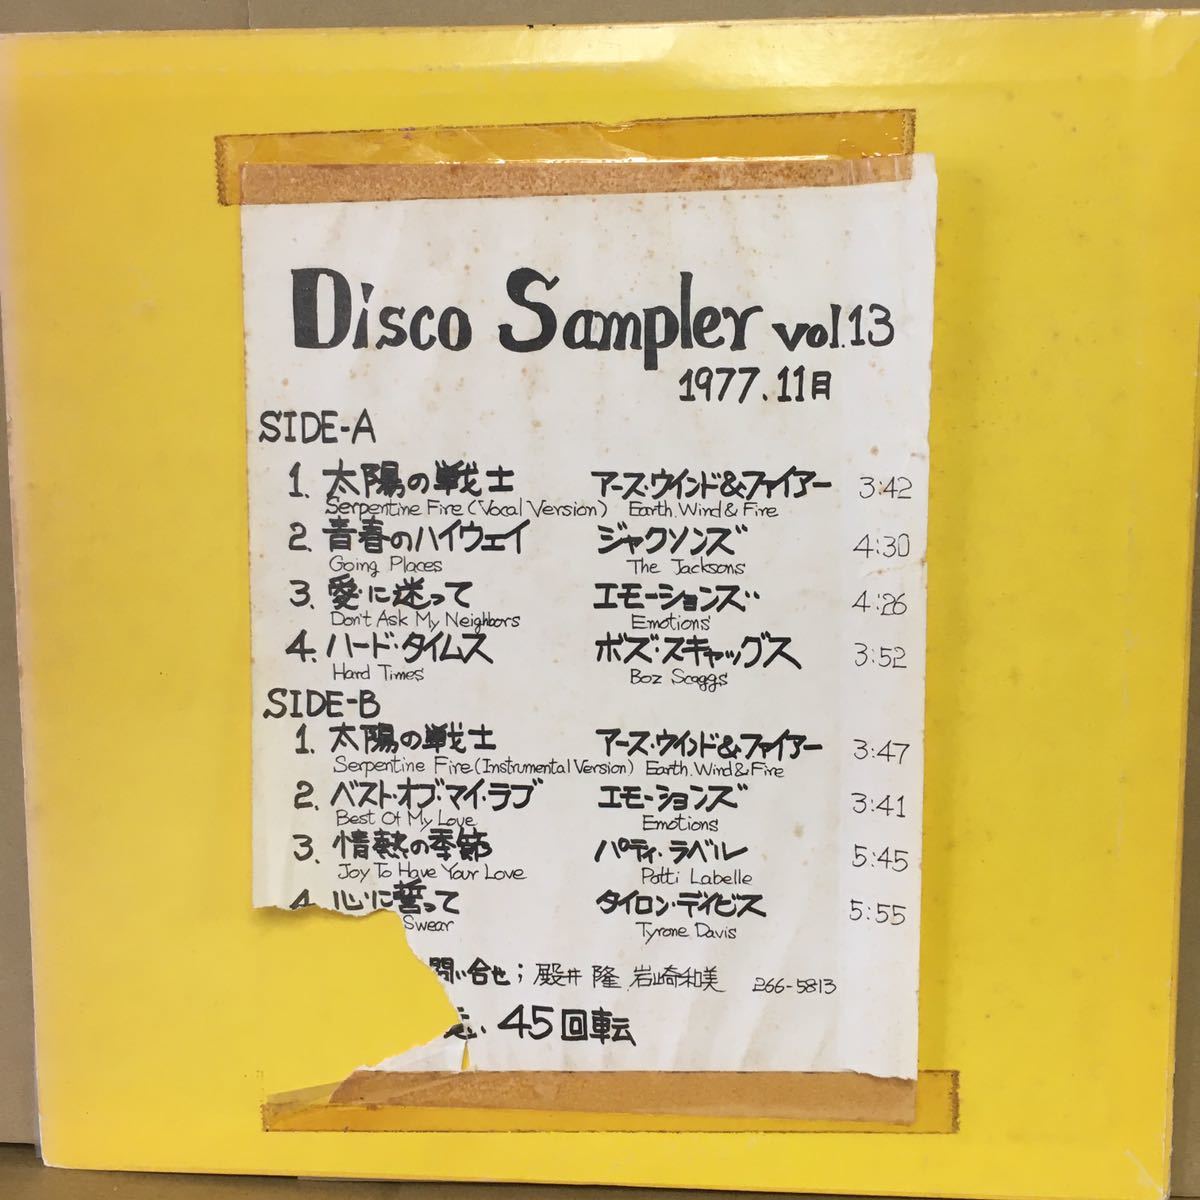 Disco Sampler vol.13
1977.11月
SIDE-A
1. 太陽の戦士 アース・ウインド&ファイアー 3:42
Serpentine Fire (Vocal Version) Earth, Wind & Fire
2. 青春のハイウェイ ジャクソンズ 4:30
Going Places The Jacksons
3. 愛に迷って エモーションズ 4:26
Don't Ask My Neighbors Emotions
4. ハード・タイムス ボズ・スキャッグス 3:52
Hard Times Boz Scaggs
SIDE-B
1. 太陽の戦士 アース・ウインド&ファイアー 3:47
Serpentine Fire (Instrumental Version) Earth, Wind & Fire
2. ベスト・オブ・マイ・ラブ エモーションズ 3:41
Best Of My Love Emotions
3. 情熱の季節 パティ・ラベル 5:45
Joy To Have Your Love Patti Labelle
4. 心に誓って タイロン・デイビス 5:55
Swear Tyrone Davis
問い合せ; 殿井 隆 岩崎和美 266-5813
45回転